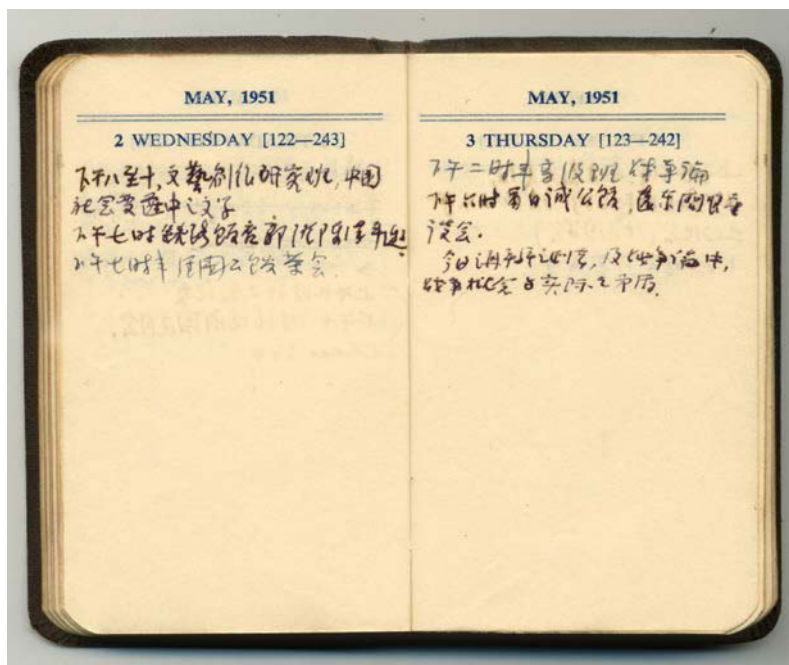 MAY, 1951
2 WEDNESDAY [122—243]
下午八至十,文藝創作研究班,中國
社会变遷中之文学
下午七时鉄路飯店郭
下午七时半周國公館茶会
MAY, 1951
3 THURSDAY [123—242]
下午二时半高級班战争論
下午六时蜀自诚公館,
谈会.
今日讲辛辩证法,及战争論中,
战争概念与实际之矛盾.